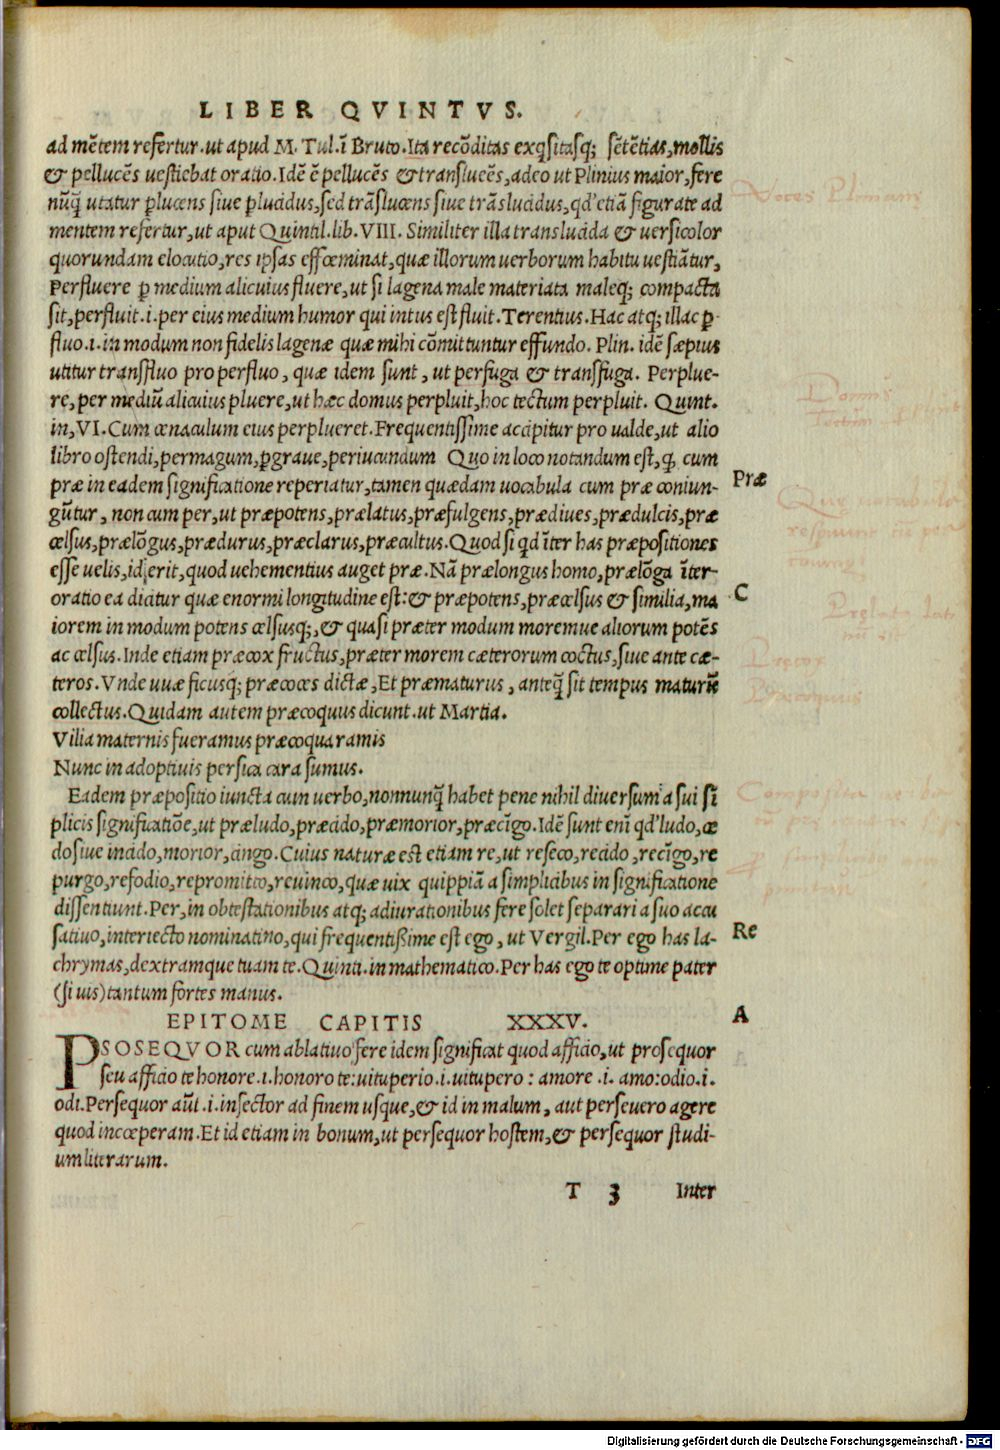 LIBER QVINTVS.
ad mẽtem refertur.ut apud M. Tul.ĩ Bruto.Ita recõditas exq̃sitasq; sẽtẽtias,mollis
& pellucẽs uestiebat oratio.Idẽ ẽ pellucẽs & translucẽs,adeo ut Plinius maior,fere
nũq̃ utatur p̱lucens siue p̱lucidus,sed trãslucens siue trãslucidus,qd'etiã figurate ad
mentem refertur,ut aput Quintil.lib.VIII. Similiter illa translucida & uersicolor
quorundam elocutio,res ipsas effœminat,quæ illorum uerborum habitu uestiãtur,
Perfluere p̱ medium alicuius fluere,ut si lagena male materiata maleq; compacta
sit,perfluit.i.per eius medium humor qui intus est fluit.Terentius.Hac atq; illac p̱-
fluo.i.in modum non fidelis lagenæ quæ mihi cõmittuntur effundo. Plin. idẽ sæpius
utitur transfluo pro perfluo, quæ idem sunt, ut perfuga & transfuga. Perplue-
re,per mediũ alicuius pluere,ut hæc domus perpluit,hoc tectum perpluit. Quint.
in,VI.Cum cœnaculum eius perplueret.Frequentissime accipitur pro ualde,ut alio
libro ostendi,permagum,p̱graue,periucundum Quo in loco notandum est,q̃ cum
præ in eadem significatione reperiatur,tamen quædam uocabula cum præ coniun-
gũtur, non cum per,ut præpotens,prælatus,præfulgens,prædiues,prædulcis,præ
celsus,prælõgus,prædurus,præclarus,præcultus.Quod si qd ĩter has præpositiones
esse uelis,id erit,quod uehementius auget præ.Nã prælongus homo,prælõga ĩter-
oratio ea dicitur quæ enormi longitudine est:& præpotens,præcelsus & similia,ma
iorem in modum potens celsusq;,& quasi præter modum moremue aliorum potẽs
ac celsus.Inde etiam præcox fructus,præter morem cæterorum coctus,siue ante cæ-
teros.Vnde uuæ ficusq; præcoces dictæ,Et præmaturus, anteq̃ sit tempus maturũ
collectus.Quidam autem præcoquus dicunt.ut Martia.
Vilia maternis fueramus præcoqua ramis
Nunc in adoptiuis persica cara sumus.
Eadem præpositio iuncta cum uerbo,nonnunq̃ habet pene nihil diuersum a sui sĩ
plicis significatiõe,ut præludo,præcido,præmorior,præcĩgo.Idẽ sunt enĩ qd'ludo,cæ
do siue incido,morior,cingo.Cuius naturæ est etiam re,ut reseco,recido,recĩgo,re
purgo,refodio,repromitto,reuinco,quæ uix quippiã a simplicibus in significatione
dissentiunt.Per,in obtestationibus atq; adiurationibus fere solet separari a suo accu
satiuo,interiecto nominatiuo,qui frequentißime est ego, ut Vergil.Per ego has la-
chrymas,dextramque tuam te.Quinti.in mathematico.Per has ego te optime pater
(si uis)tantum fortes manus.
EPITOME CAPITIS XXXV.
PSOSEQVOR cum ablatiuo fere idem significat quod afficio,ut prosequor
seu afficio te honore.i.honoro te:uituperio.i.uitupero: amore .i. amo:odio.i.
odi.Persequor aũt.i.insector ad finem usque,& id in malum, aut perseuero agere
quod incœperam.Et id etiam in bonum,ut persequor hostem,& persequor studi-
um literarum.
T 3 Inter
Præ
C
Re
A
Voces Plinianę
Domus
Præcox
Præcoquus
Digitalisierung gefördert durch die Deutsche Forschungsgemeinschaft - DFG